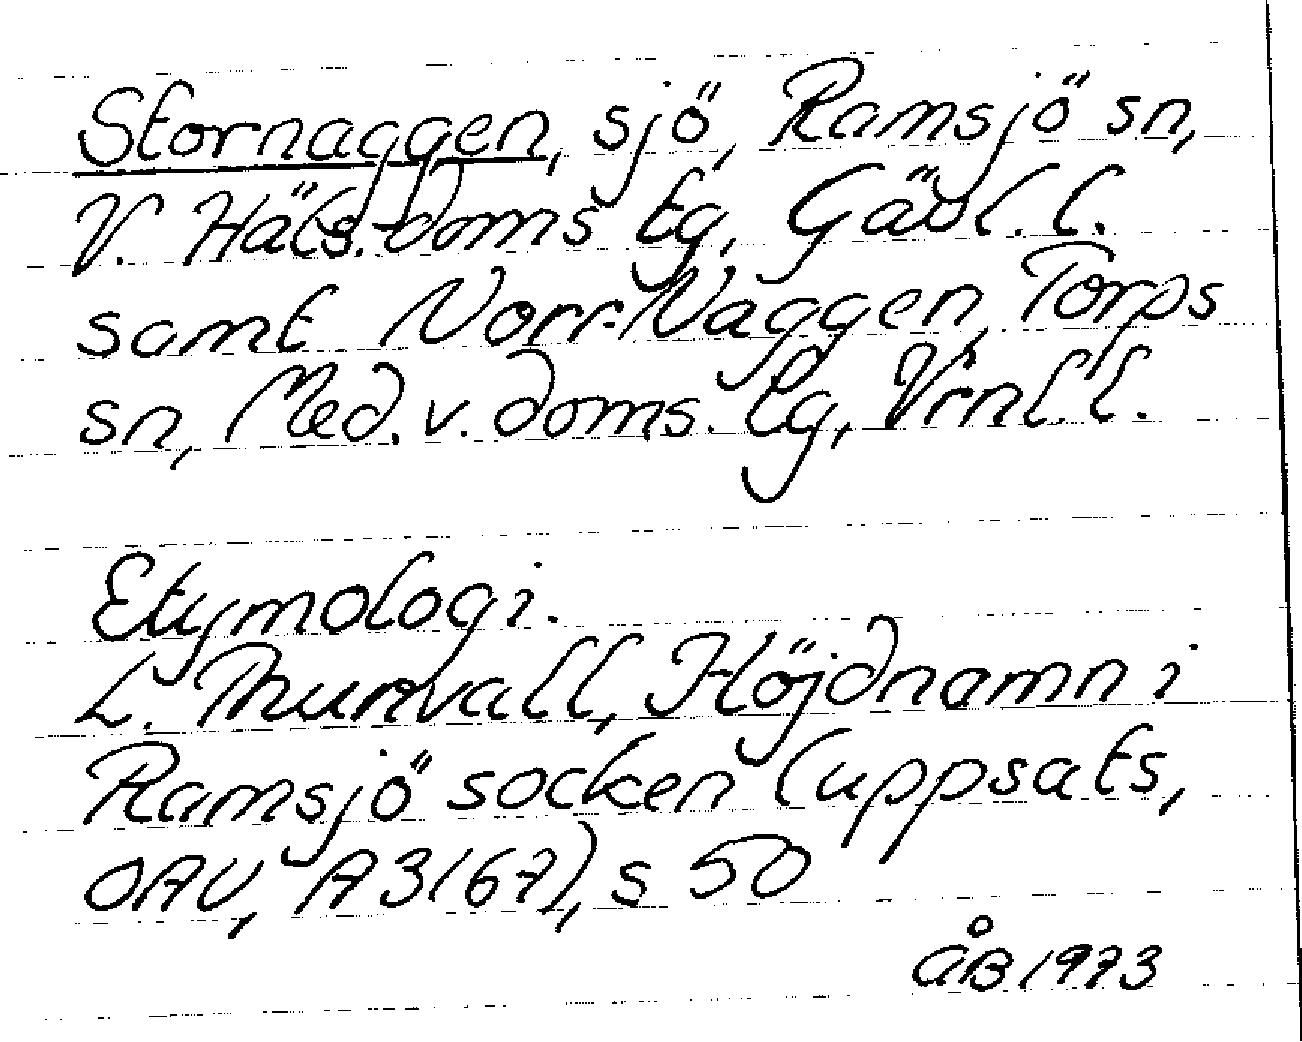 Stornaggen, sjö, Ramsjö sn,
V. Häls. doms tg, Gävl. l.
samt Norr-Naggen, Torps
sn, Med. v. doms. tg, Vrnl. l.
Etymologi.
L. Thunvall, Höjdnamn i
Ramsjö socken (uppsats,
OAU, A3167), s 50
ÅB 1973